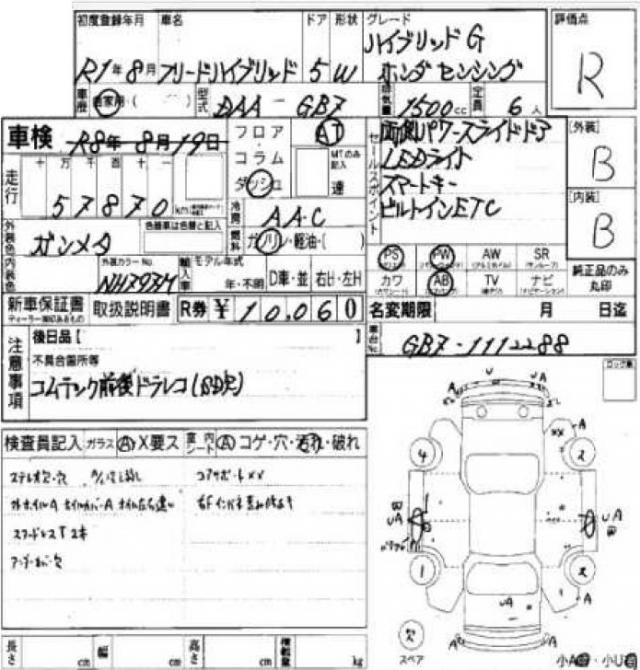 初度登録年月 車名 ドア 形状 グレード 評価点
R1年8月 フリードハイブリッド 5 W ハイブリッド G ホンダセンシング R
車歴 自家用・( ) 型式 DAA-GB7 排気量 1500cc 定員 6人
車検 R8年8月19日
フロア・コラム ダッシュ AT MTのみ記入 速
セールスポイント
両側パワースライドドア
LEDライト
スマートキー
ビルトインETC
[外装] B
[内装] B
走行 十万千百十一 57870 km
冷房 AAC
燃料 ガソリン・軽油・( )
外装色 ガンメタ 色替車は色替と記入
内装色 外装カラーNo.
輸入車 モデル年式 年・不明 D車・並 右H・左H
PS PW AW SR
カワ AB TV ナビ
純正品のみ丸印
新車保証書 取扱説明書 R券 ¥10,060
名変期限 月 日迄
車台No. GB7-1112288
注意事項
後日品[ ]
不具合箇所等
コムテック前後ドラレコ(SD欠)
検査員記入 ガラス A・X要ス 室内シート A コゲ・穴・汚れ・破れ
ステレオ欠・穴
スタッドレスT 2本
ロック車
A U A
A
XX
A
4 2
UA
UA
W
1 2
UA
A A
欠
スペア
小A 小U
長さ cm 幅 cm 高さ cm 積載量 kg